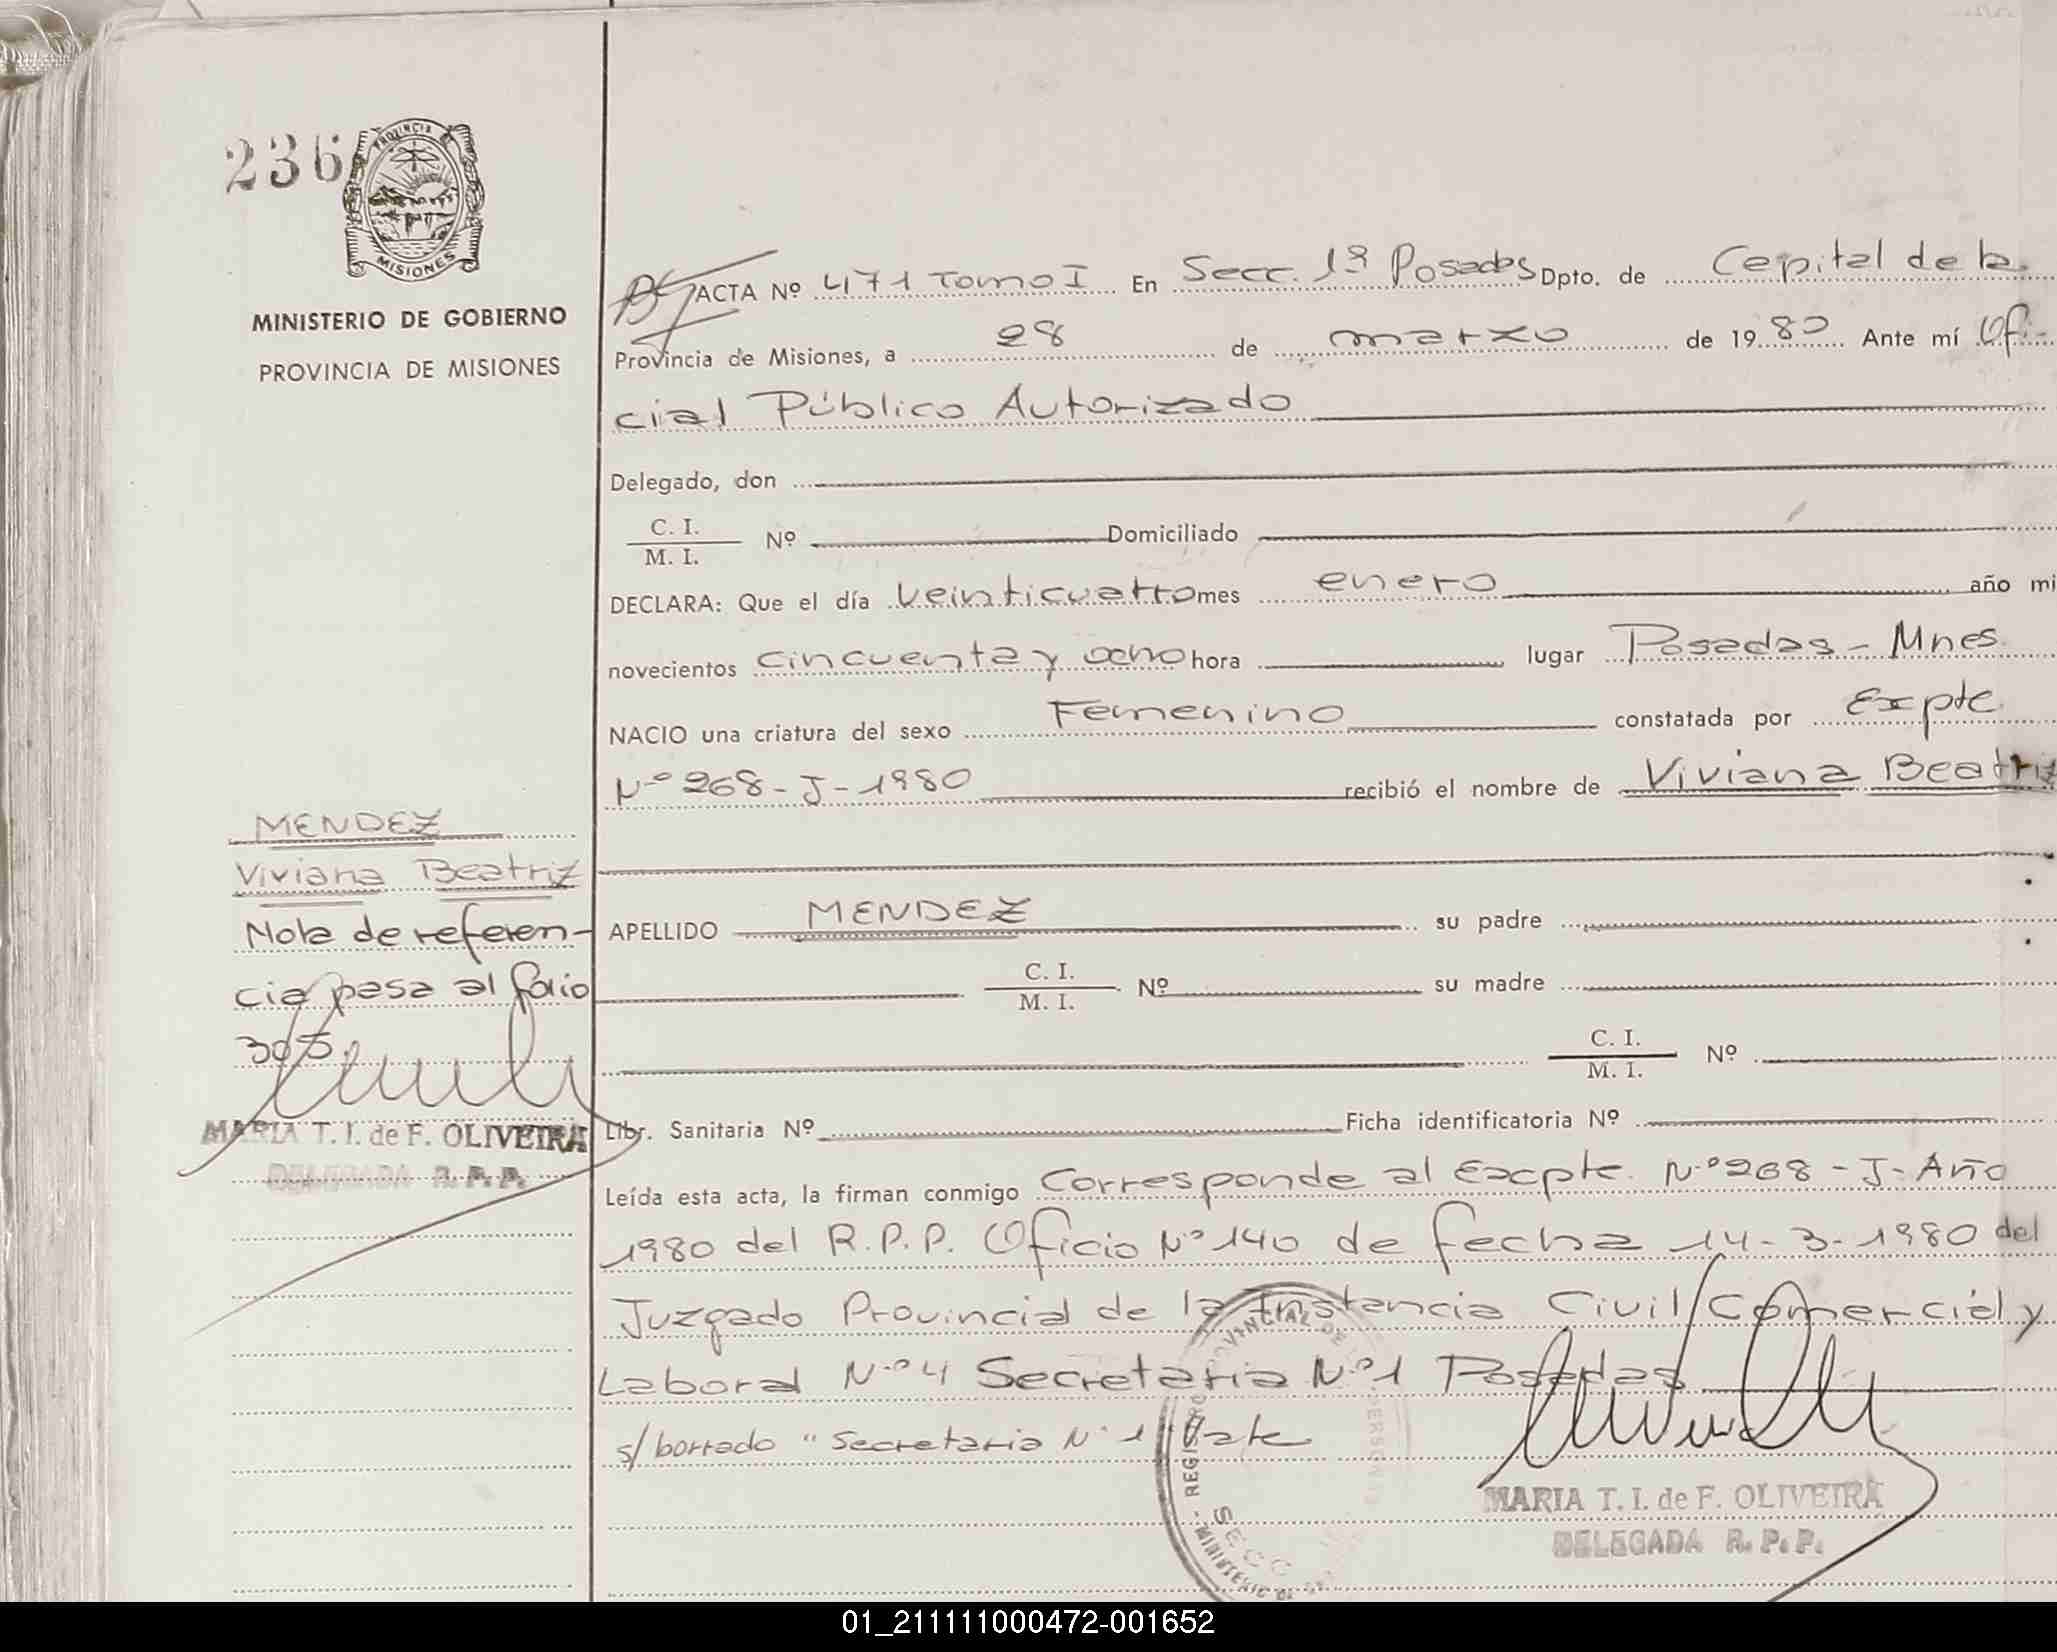 236
PROVINCIA DE
MISIONES
MINISTERIO DE GOBIERNO
PROVINCIA DE MISIONES
ACTA Nº 471 Tomo I En Secc. 1ª Posadas Dpto. de Capital de la
Provincia de Misiones, a 28 de marzo de 1980 Ante mí Ofi-
cial Público Autorizado
Delegado, don
C. I.
M. I. Nº Domiciliado
DECLARA: Que el día veinticuatro mes enero año mi
novecientos cincuenta y ocho hora lugar Posadas - Mnes.
NACIO una criatura del sexo Femenino constatada por Expte
Nº 268 - J - 1980 recibió el nombre de Viviana Beatriz
MENDEZ
Viviana Beatriz
Nota de referen-
cia pasa al folio
305.
MARIA T. I. de F. OLIVEIRA
DELEGADA R. P. P.
APELLIDO MENDEZ su padre
C. I.
M. I. Nº su madre
C. I.
M. I. Nº
Libr. Sanitaria Nº Ficha identificatoria Nº
Leída esta acta, la firman conmigo Corresponde al Excpte. Nº 268 - J - Año
1980 del R.P.P. Oficio Nº 140 de fecha 14-3-1980 del
Juzgado Provincial de 1a Instancia Civil Comercial y
Laboral Nº 4 Secretaria Nº 1 Posadas
s/ borrado "Secretaria Nº 1" Vale
MARIA T. I. de F. OLIVEIRA
DELEGADA R. P. P.
01_211111000472-001652